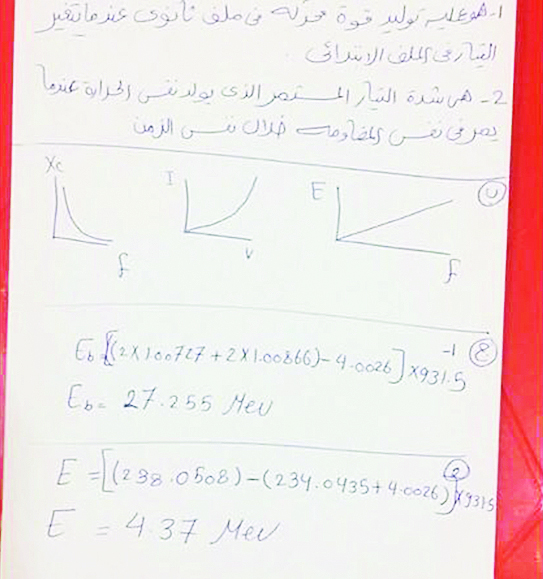 1- هو عملية توليد قوة محركة في ملف ثانوي عندما يتغير
التيار في الملف الابتدائي.
2- هي شدة التيار المستمر الذي يولد نفس الحرارة عندما
يمر في نفس المقاومة خلال نفس الزمن
Xc I E
f v f
Eb = [(2×1.00727 + 2×1.00866) - 4.0026] × 931.5 -1
Eb = 27.255 Mev
2
E = [(238.0508) - (234.0435 + 4.0026)] × 931.5
E = 4.37 Mev